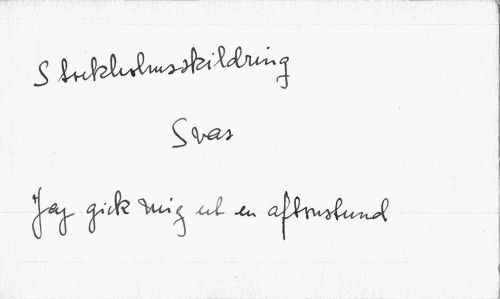 Stockholmsskildring
Svar
"Jag gick mig ut en aftonstund